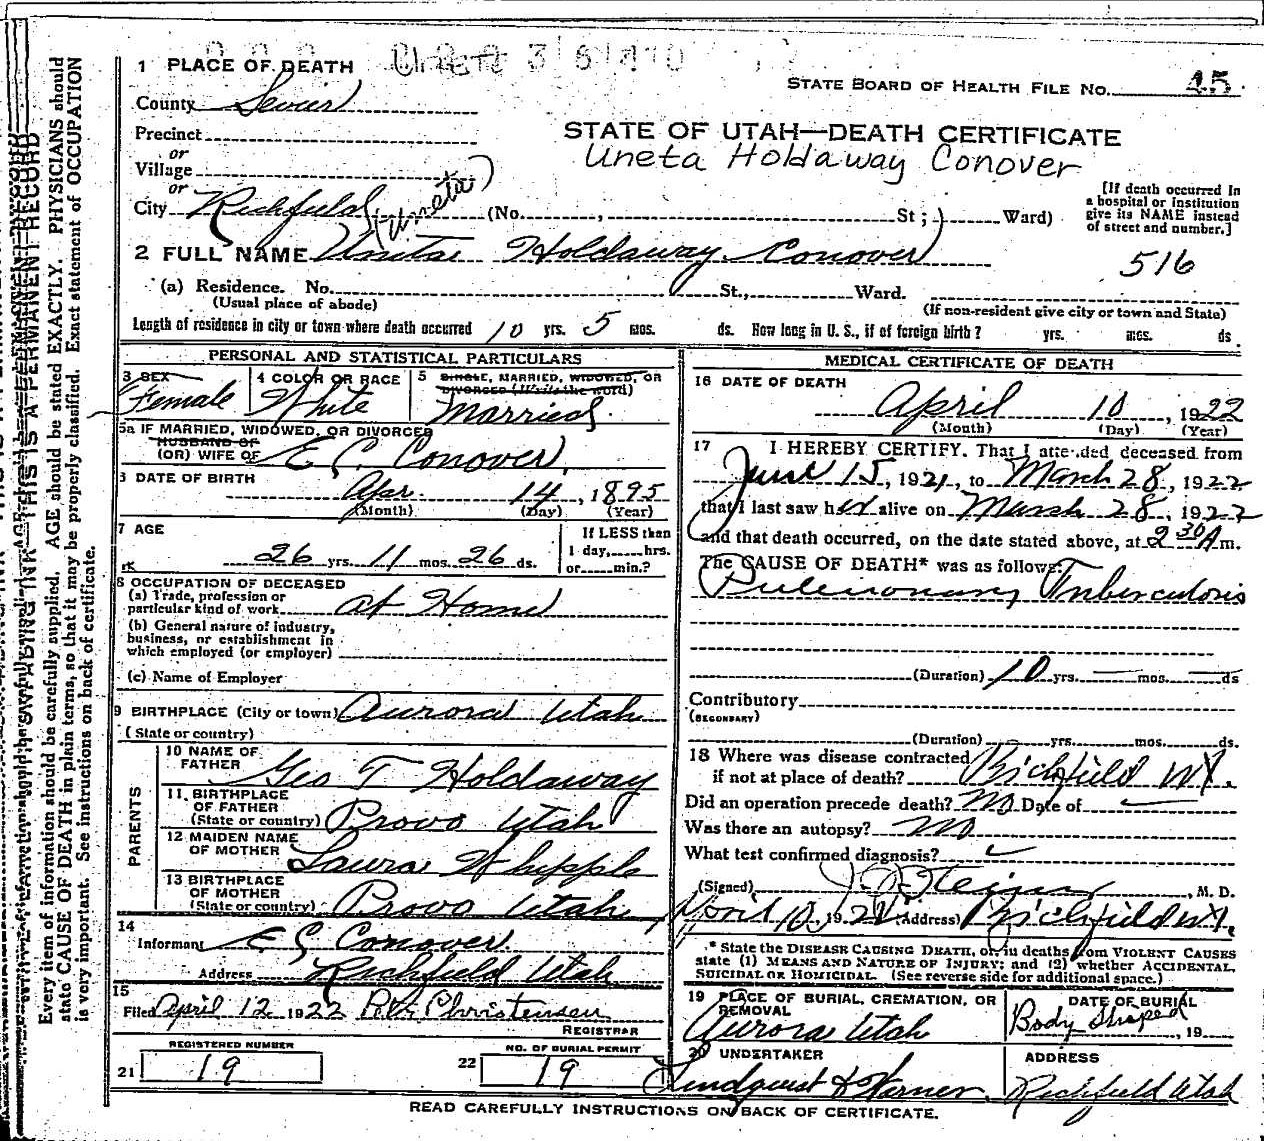 1 PLACE OF DEATH
STATE BOARD OF HEALTH FILE NO. 45
County Sevier
STATE OF UTAH—DEATH CERTIFICATE
Uneta Holdaway Conover
Precinct
or
Village
or
City Richfield (No. , St ; Ward)
[If death occurred in a hospital or institution give its NAME instead of street and number.]
(Uneta)
2 FULL NAME Unita Holdaway Conover
516
(a) Residence. No. St., Ward.
(Usual place of abode) (If non-resident give city or town and State)
Length of residence in city or town where death occurred 10 yrs. 5 mos. ds. How long in U. S., if of foreign birth? yrs. mos. ds.
PERSONAL AND STATISTICAL PARTICULARS
3 SEX Female
4 COLOR OR RACE White
5 SINGLE, MARRIED, WIDOWED, OR DIVORCED (Write the word) Married
5a IF MARRIED, WIDOWED, OR DIVORCED
HUSBAND OF
(OR) WIFE OF E C Conover
6 DATE OF BIRTH
Apr. 14, 1895
(Month) (Day) (Year)
7 AGE
26 yrs. 11 mos. 26 ds.
If LESS than 1 day, hrs. or min.?
8 OCCUPATION OF DECEASED
(a) Trade, profession or particular kind of work at Home
(b) General nature of industry, business, or establishment in which employed (or employer)
(c) Name of Employer
9 BIRTHPLACE (City or town) Aurora Utah
(State or country)
PARENTS
10 NAME OF FATHER Geo T Holdaway
11 BIRTHPLACE OF FATHER (State or country) Provo Utah
12 MAIDEN NAME OF MOTHER Laura Whipple
13 BIRTHPLACE OF MOTHER (State or country) Provo Utah
14
Informant E C Conover
Address Richfield Utah
15
Filed April 12 1922 Christensen
REGISTRAR
REGISTERED NUMBER
21 19
NO. OF BURIAL PERMIT
22 19
MEDICAL CERTIFICATE OF DEATH
16 DATE OF DEATH
April 10, 1922
(Month) (Day) (Year)
17 I HEREBY CERTIFY, That I attended deceased from
June 15, 1921, to March 28, 1922
that I last saw her alive on March 28, 1922
and that death occurred, on the date stated above, at 2 30 A m.
The CAUSE OF DEATH* was as follows:
Pulmonary Tuberculosis
(Duration) 10 yrs. — mos. — ds
Contributory
(SECONDARY)
(Duration) yrs. mos. ds.
18 Where was disease contracted
if not at place of death? Richfield Ut.
Did an operation precede death? No Date of
Was there an autopsy? No
What test confirmed diagnosis?
(Signed) , M. D.
April 10, 1922 (Address) Richfield Ut.
* State the DISEASE CAUSING DEATH, or, in deaths from VIOLENT CAUSES
state (1) MEANS AND NATURE OF INJURY; and (2) whether ACCIDENTAL,
SUICIDAL OR HOMICIDAL. (See reverse side for additional space.)
19 PLACE OF BURIAL, CREMATION, OR REMOVAL
Aurora Utah
DATE OF BURIAL
Body Shiped , 19
20 UNDERTAKER
Lindquist & Warner
ADDRESS
Richfield Utah
READ CAREFULLY INSTRUCTIONS ON BACK OF CERTIFICATE.
THIS IS A PERMANENT RECORD
Every item of information should be carefully supplied. AGE should be stated EXACTLY. PHYSICIANS should
state CAUSE OF DEATH in plain terms, so that it may be properly classified. Exact statement of OCCUPATION
is very important. See instructions on back of certificate.